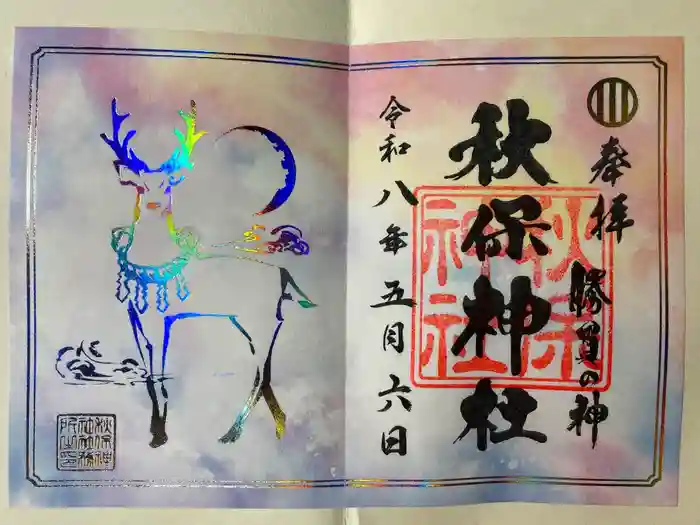 奉拝
勝負の神
秋保神社
秋保
神社
令和八年五月六日
秋保神
社社務
所之印